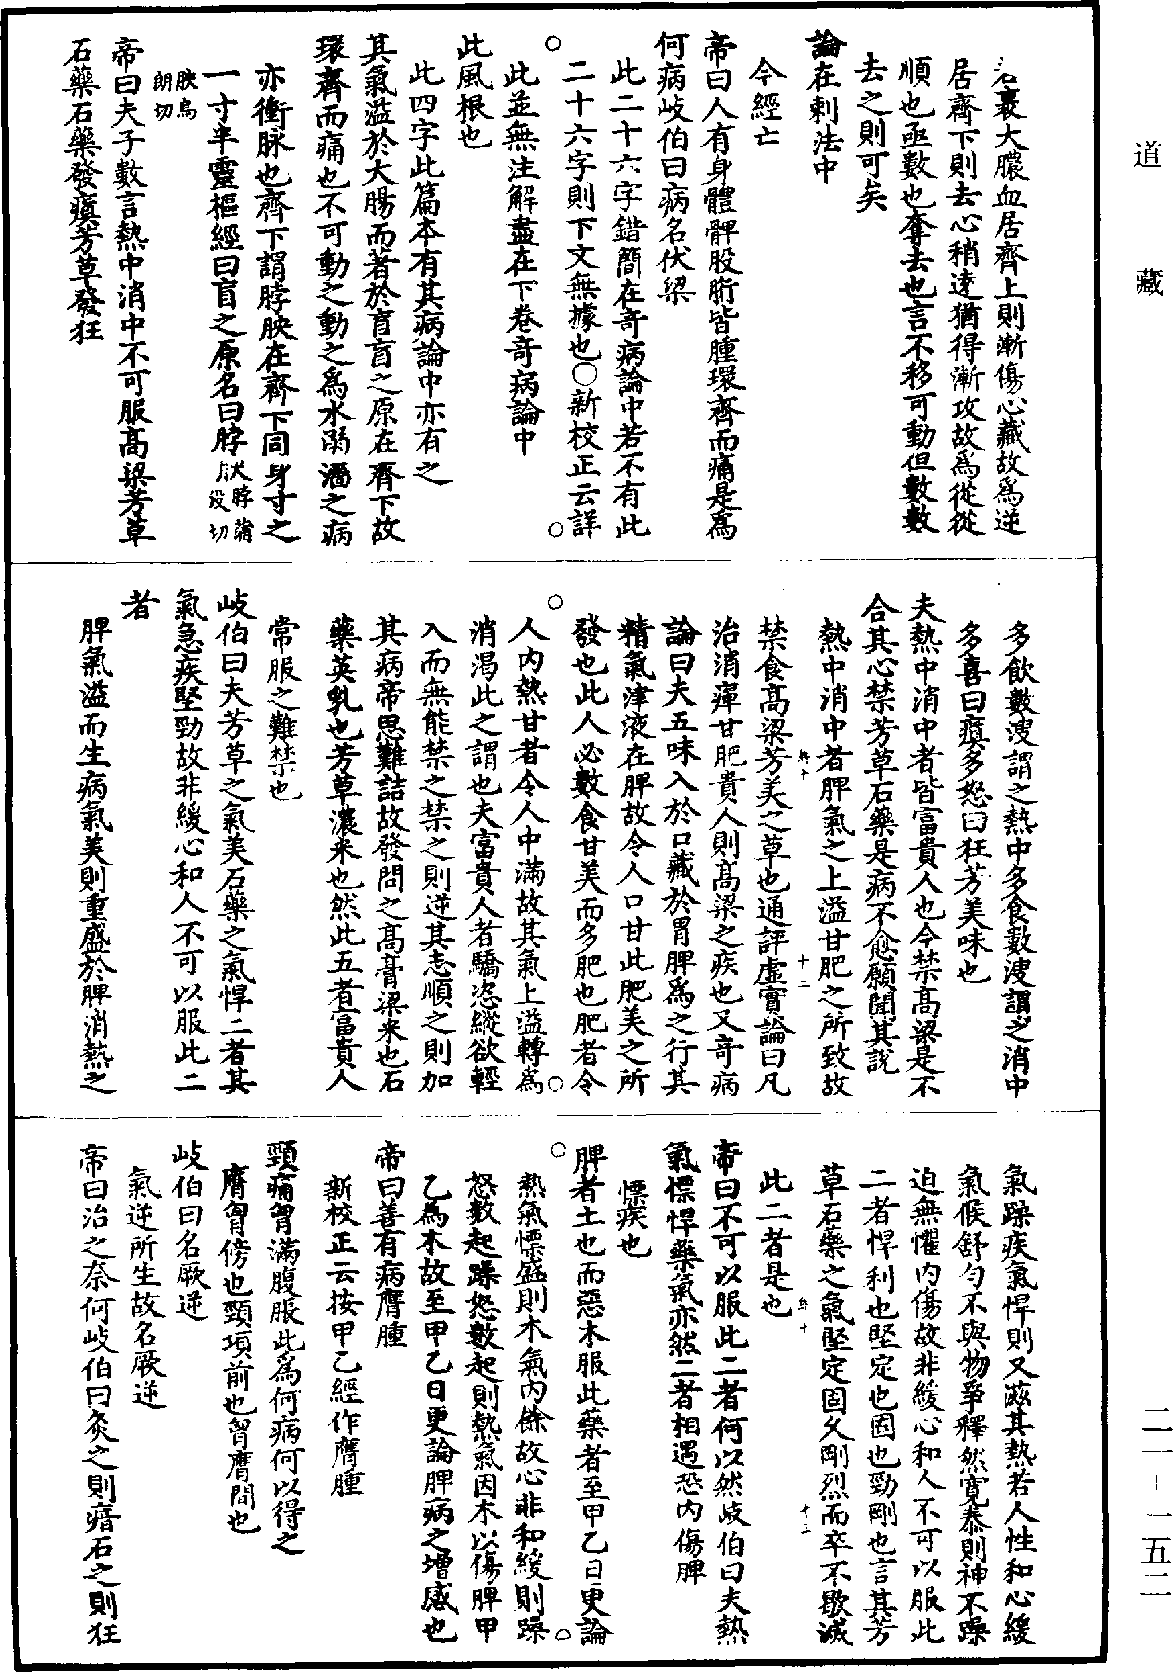 若裹大膿血居齊上則漸傷心藏故爲逆
居齊下則去心稍遠猶得漸攻故爲從從
順也亟數也奪去也言不移可動但數數
去之則可矣
論在刺法中
今經亡
帝曰人有身體髀股䯒皆腫環齊而痛是爲
何病岐伯曰病名伏梁
此二十六字錯簡在奇病論中若不有此
二十六字則下文無據也○新校正云詳
此並無注解盡在下卷奇病論中
此風根也
此四字此篇本有其病論中亦有之
其氣溢於大腸而著於肓肓之原在齊下故
環齊而痛也不可動之動之爲水溺濇之病
亦衝脉也齊下謂脖胦在齊下同身寸之
一寸半靈樞經曰肓之原名曰脖胦脖蒲沒切
胦烏朗切
帝曰夫子數言熱中消中不可服高梁芳草
石藥石藥發瘨芳草發狂
多飲數溲謂之熱中多食數溲謂之消中
多喜曰瘨多怒曰狂芳美味也
夫熱中消中者皆富貴人也今禁高梁是不
合其心禁芳草石藥是病不愈願聞其說
熱中消中者脾氣之上溢甘肥之所致故
禁食高梁芳美之草也通評虛實論曰凡
治消癉甘肥貴人則高梁之疾也又奇病
論曰夫五味入於口藏於胃脾爲之行其
精氣津液在脾故令人口甘此肥美之所
發也此人必數食甘美而多肥也肥者令
人內熱甘者令人中滿故其氣上溢轉爲
消渴此之謂也夫富貴人者驕恣縱欲輕
人而無能禁之禁之則逆其志順之則加
其病帝思難詰故發問之高膏梁米也石
藥英乳也芳草濃米也然此五者富貴人
常服之難禁也
岐伯曰夫芳草之氣美石藥之氣悍二者其
氣急疾堅勁故非緩心和人不可以服此二
者
脾氣溢而生病氣美則重盛於脾消熱之
氣躁疾氣悍則又滋其熱若人性和心緩
氣候舒勻不與物爭釋然寬泰則神不躁
迫無懼內傷故非緩心和人不可以服此
二者悍利也堅定也固也勁剛也言其芳
草石藥之氣堅定固久剛烈而卒不歇滅
此二者是也
帝曰不可以服此二者何以然岐伯曰夫熱
氣慓悍藥氣亦然二者相遇恐內傷脾
慓疾也
脾者土也而惡木服此藥者至甲乙日更論
熱氣慓盛則木氣內餘故心非和緩則躁
怒數起躁怒數起則熱氣因木以傷脾甲
乙爲木故至甲乙日更論脾病之增減也
帝曰善有病膺腫
新校正云按甲乙經作膺腫
頸痛胷滿腹脹此爲何病何以得之
膺胷傍也頸項前也胷膺間也
岐伯曰名厥逆
氣逆所生故名厥逆
帝曰治之奈何岐伯曰灸之則瘖石之則狂
道藏
二一－一五二